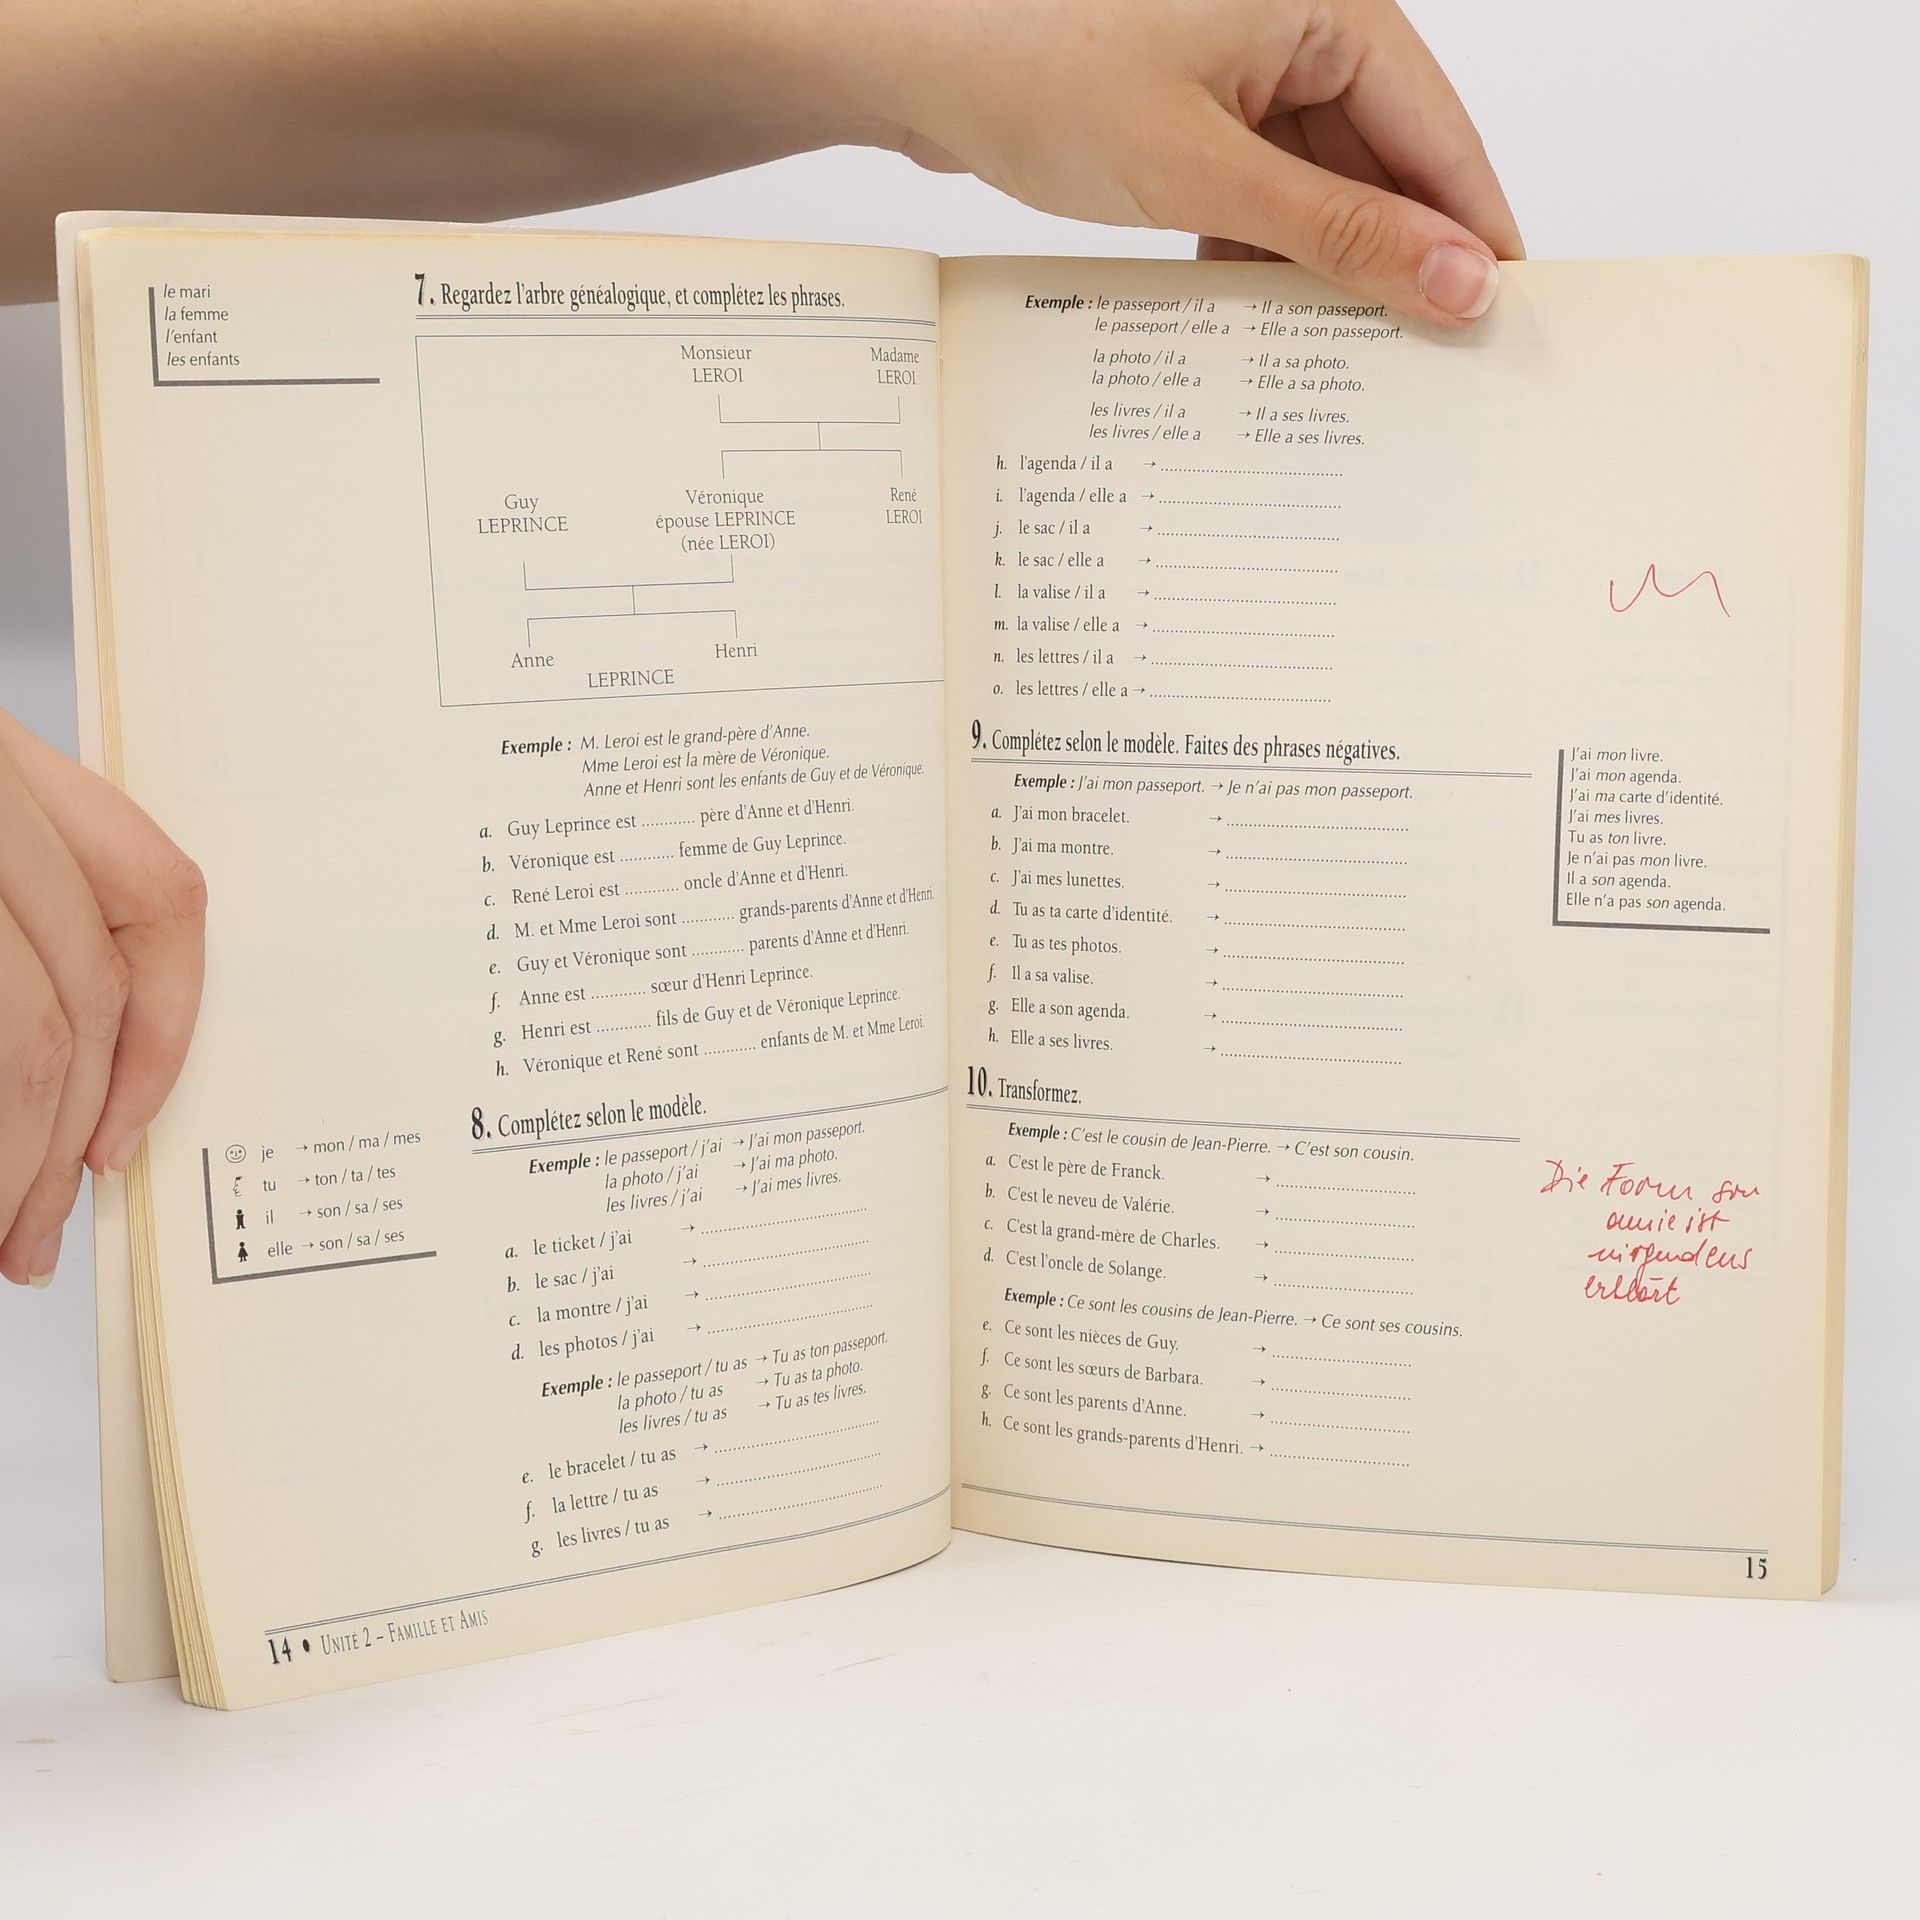 le mari
la femme
l'enfant
les enfants
7. Regardez l'arbre généalogique, et complétez les phrases.
Monsieur Madame
LEROI LEROI
Guy Véronique René
LEPRINCE épouse LEPRINCE LEROI
(née LEROI)
Anne Henri
LEPRINCE
Exemple : M. Leroi est le grand-père d'Anne.
Mme Leroi est la mère de Véronique.
Anne et Henri sont les enfants de Guy et de Véronique.
a. Guy Leprince est ............ père d'Anne et d'Henri.
b. Véronique est ............ femme de Guy Leprince.
c. René Leroi est ............ oncle d'Anne et d'Henri.
d. M. et Mme Leroi sont ............ grands-parents d'Anne et d'Henri.
e. Guy et Véronique sont ............ parents d'Anne et d'Henri.
f. Anne est ............ sœur d'Henri Leprince.
g. Henri est ............ fils de Guy et de Véronique Leprince.
h. Véronique et René sont ............ enfants de M. et Mme Leroi.
8. Complétez selon le modèle.
je → mon / ma / mes
tu → ton / ta / tes
il → son / sa / ses
elle → son / sa / ses
Exemple : le passeport / j'ai → J'ai mon passeport.
la photo / j'ai → J'ai ma photo.
les livres / j'ai → J'ai mes livres.
a. le ticket / j'ai → ....................
b. le sac / j'ai → ....................
c. la montre / j'ai → ....................
d. les photos / j'ai → ....................
Exemple : le passeport / tu as → Tu as ton passeport.
la photo / tu as → Tu as ta photo.
les livres / tu as → Tu as tes livres.
e. le bracelet / tu as → ....................
f. la lettre / tu as → ....................
g. les livres / tu as → ....................
14 • UNITÉ 2 – FAMILLE ET AMIS
Exemple : le passeport / il a → Il a son passeport.
le passeport / elle a → Elle a son passeport.
la photo / il a → Il a sa photo.
la photo / elle a → Elle a sa photo.
les livres / il a → Il a ses livres.
les livres / elle a → Elle a ses livres.
h. l'agenda / il a → ....................
i. l'agenda / elle a → ....................
j. le sac / il a → ....................
k. le sac / elle a → ....................
l. la valise / il a → ....................
m. la valise / elle a → ....................
n. les lettres / il a → ....................
o. les lettres / elle a → ....................
9. Complétez selon le modèle. Faites des phrases négatives.
Exemple : J'ai mon passeport. → Je n'ai pas mon passeport.
a. J'ai mon bracelet. → ....................
b. J'ai ma montre. → ....................
c. J'ai mes lunettes. → ....................
d. Tu as ta carte d'identité. → ....................
e. Tu as tes photos. → ....................
f. Il a sa valise. → ....................
g. Elle a son agenda. → ....................
h. Elle a ses livres. → ....................
J'ai mon livre.
J'ai mon agenda.
J'ai ma carte d'identité.
J'ai mes livres.
Tu as ton livre.
Je n'ai pas mon livre.
Il a son agenda.
Elle n'a pas son agenda.
10. Transformez.
Exemple : C'est le cousin de Jean-Pierre. → C'est son cousin.
a. C'est le père de Franck. → ....................
b. C'est le neveu de Valérie. → ....................
c. C'est la grand-mère de Charles. → ....................
d. C'est l'oncle de Solange. → ....................
Exemple : Ce sont les cousins de Jean-Pierre. → Ce sont ses cousins.
e. Ce sont les nièces de Guy. → ....................
f. Ce sont les sœurs de Barbara. → ....................
g. Ce sont les parents d'Anne. → ....................
h. Ce sont les grands-parents d'Henri. → ....................
Die Form son
amie ist
nirgendens
erklärt
15